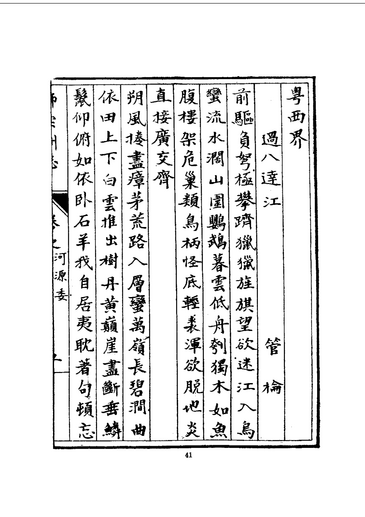 粤西界
過八達江 管棆
前驅負弩極攀躋獵獵旌旗望欲迷江入烏
蠻流水濶山圍鸚鵡暮雲低舟刳獨木如魚
腹樓架危巢類鳥栖怪底輕裘渾欲脱地炎
直接廣交齊
朔風捲盡瘴茅荒路入層蠻萬嶺長碧澗曲
依田上下白雲推出樹丹黄巔崖盡斷垂鱗
鬣仰俯如依卧石羊我自居夷耽著句頓忘
師宗州志
卷之
河源委
41